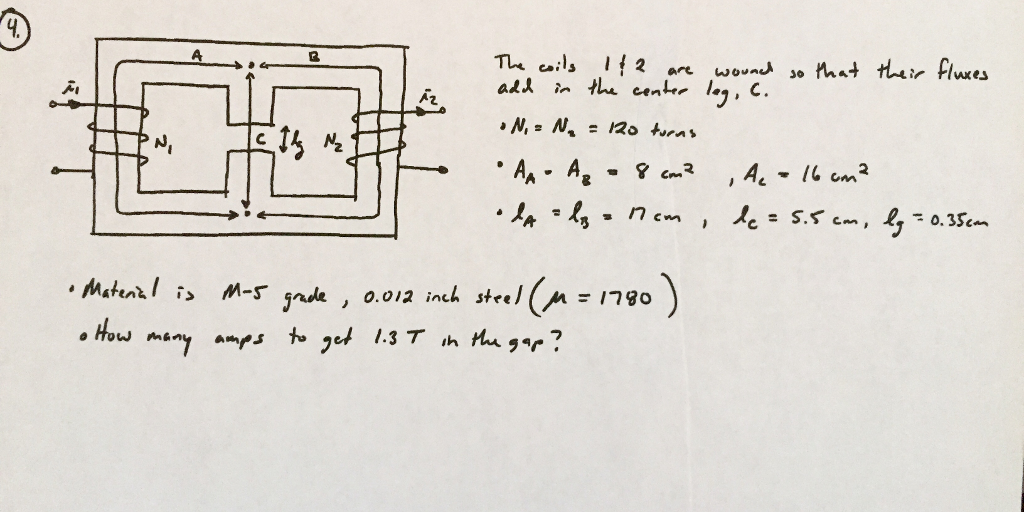 4.
A B
i1 i2
N1 C lg N2
The coils 1 & 2 are wound so that their fluxes
add in the center leg, C.
• N1 = N2 = 120 turns
• AA = AB = 8 cm², Ac = 16 cm²
• lA = lB = 17 cm, lc = 5.5 cm, lg = 0.35cm
• Material is M-5 grade, 0.012 inch steel (μ = 1780)
• How many amps to get 1.3 T in the gap?